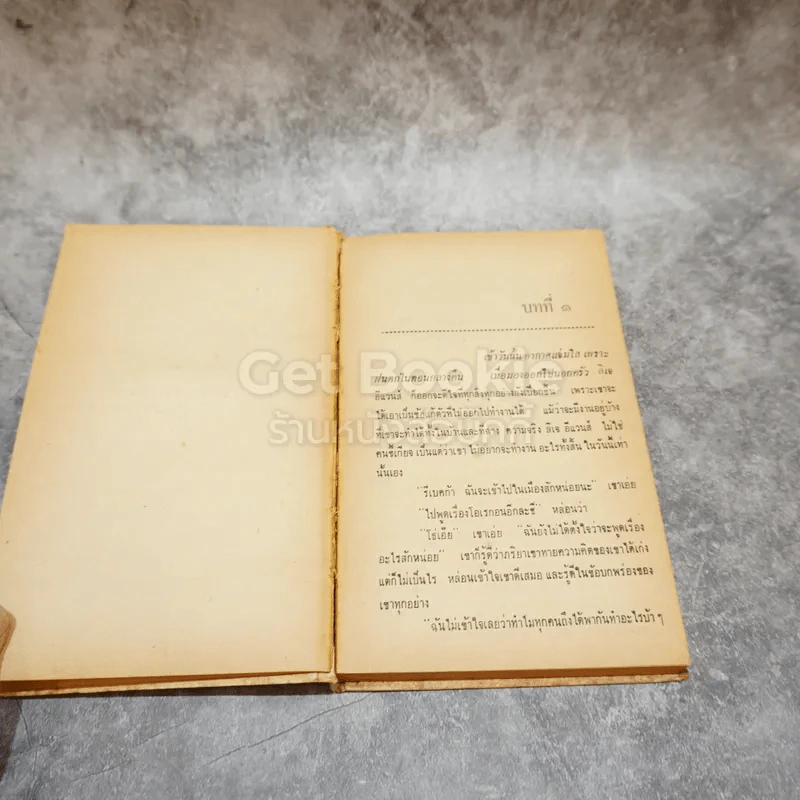 บทที่ ๑
เช้าวันนั้น อากาศแจ่มใส เพราะ
ฝนตกในตอนกลางคืน เมื่อมองออกไปนอกครัว ลิเจ
อีแวนส์ ก็ออกจะดีใจที่ทุกสิ่งทุกอย่างยังเปียกชื้น เพราะเขาจะ
ได้เอาเป็นข้อแก้ตัวที่ไม่ออกไปทำงานได้ แม้ว่าจะมีงานอยู่บ้าง
ที่เขาจะทำได้ทั้งในบ้านและที่ฉาง ความจริง ลิเจ อีแวนส์ ไม่ใช่
คนขี้เกียจ เป็นแต่ว่าเขา ไม่อยากจะทำงาน อะไรทั้งสิ้น ในวันนี้เท่า
นั้นเอง
"รีเบคก้า ฉันจะเข้าไปในเมืองสักหน่อยนะ" เขาเอ่ย
"ไปพูดเรื่องโอเรกอนอีกละซี" หล่อนว่า
"โธ่เอ๊ย" เขาเอ่ย "ฉันยังไม่ได้ตั้งใจว่าจะพูดเรื่อง
อะไรสักหน่อย" เขาก็รู้ดีว่าภริยาเขาทายความคิดของเขาได้เก่ง
แต่ก็ไม่เป็นไร หล่อนเข้าใจเขาดีเสมอ และรู้ดีในข้อบกพร่องของ
เขาทุกอย่าง
"ฉันไม่เข้าใจเลยว่าทำไมทุกคนถึงได้พากันทำอะไรบ้า ๆ
Get Bookie
ร้านหนังสือเก็ทบุ๊คกี้